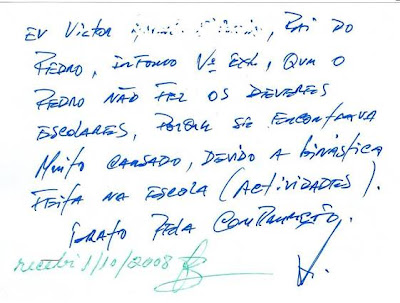 Eu Victor , Pai do
Pedro, informo Vª Exª, que o
Pedro não fez os deveres
escolares, porque se encontrava
muito cansado, devido a ginástica
feita na escola (Actividades).
Grato pela compreenção.
recebi 1/10/2008